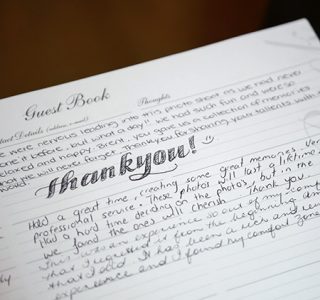 Guest Book
Contact Details (address, e-mail) Thoughts
were nervous leading into this photo shoot as we had never
done it before, but what a day!! We had such fun and were so
relaxed and happy. Brent, you gave us a collection of memories
we will never forget. Thank you for sharing your talents with
thankyou!
Had a great time, creating some great memories. Very
professional service. These photos will last a lifetime,
Had a hard time deciding on the photos, but in
we found the ones will cherish. Thank you
This was an experience so out of my comfort
that I in the beginning and
that said it has been a rich and
experience and I found my comfort zone